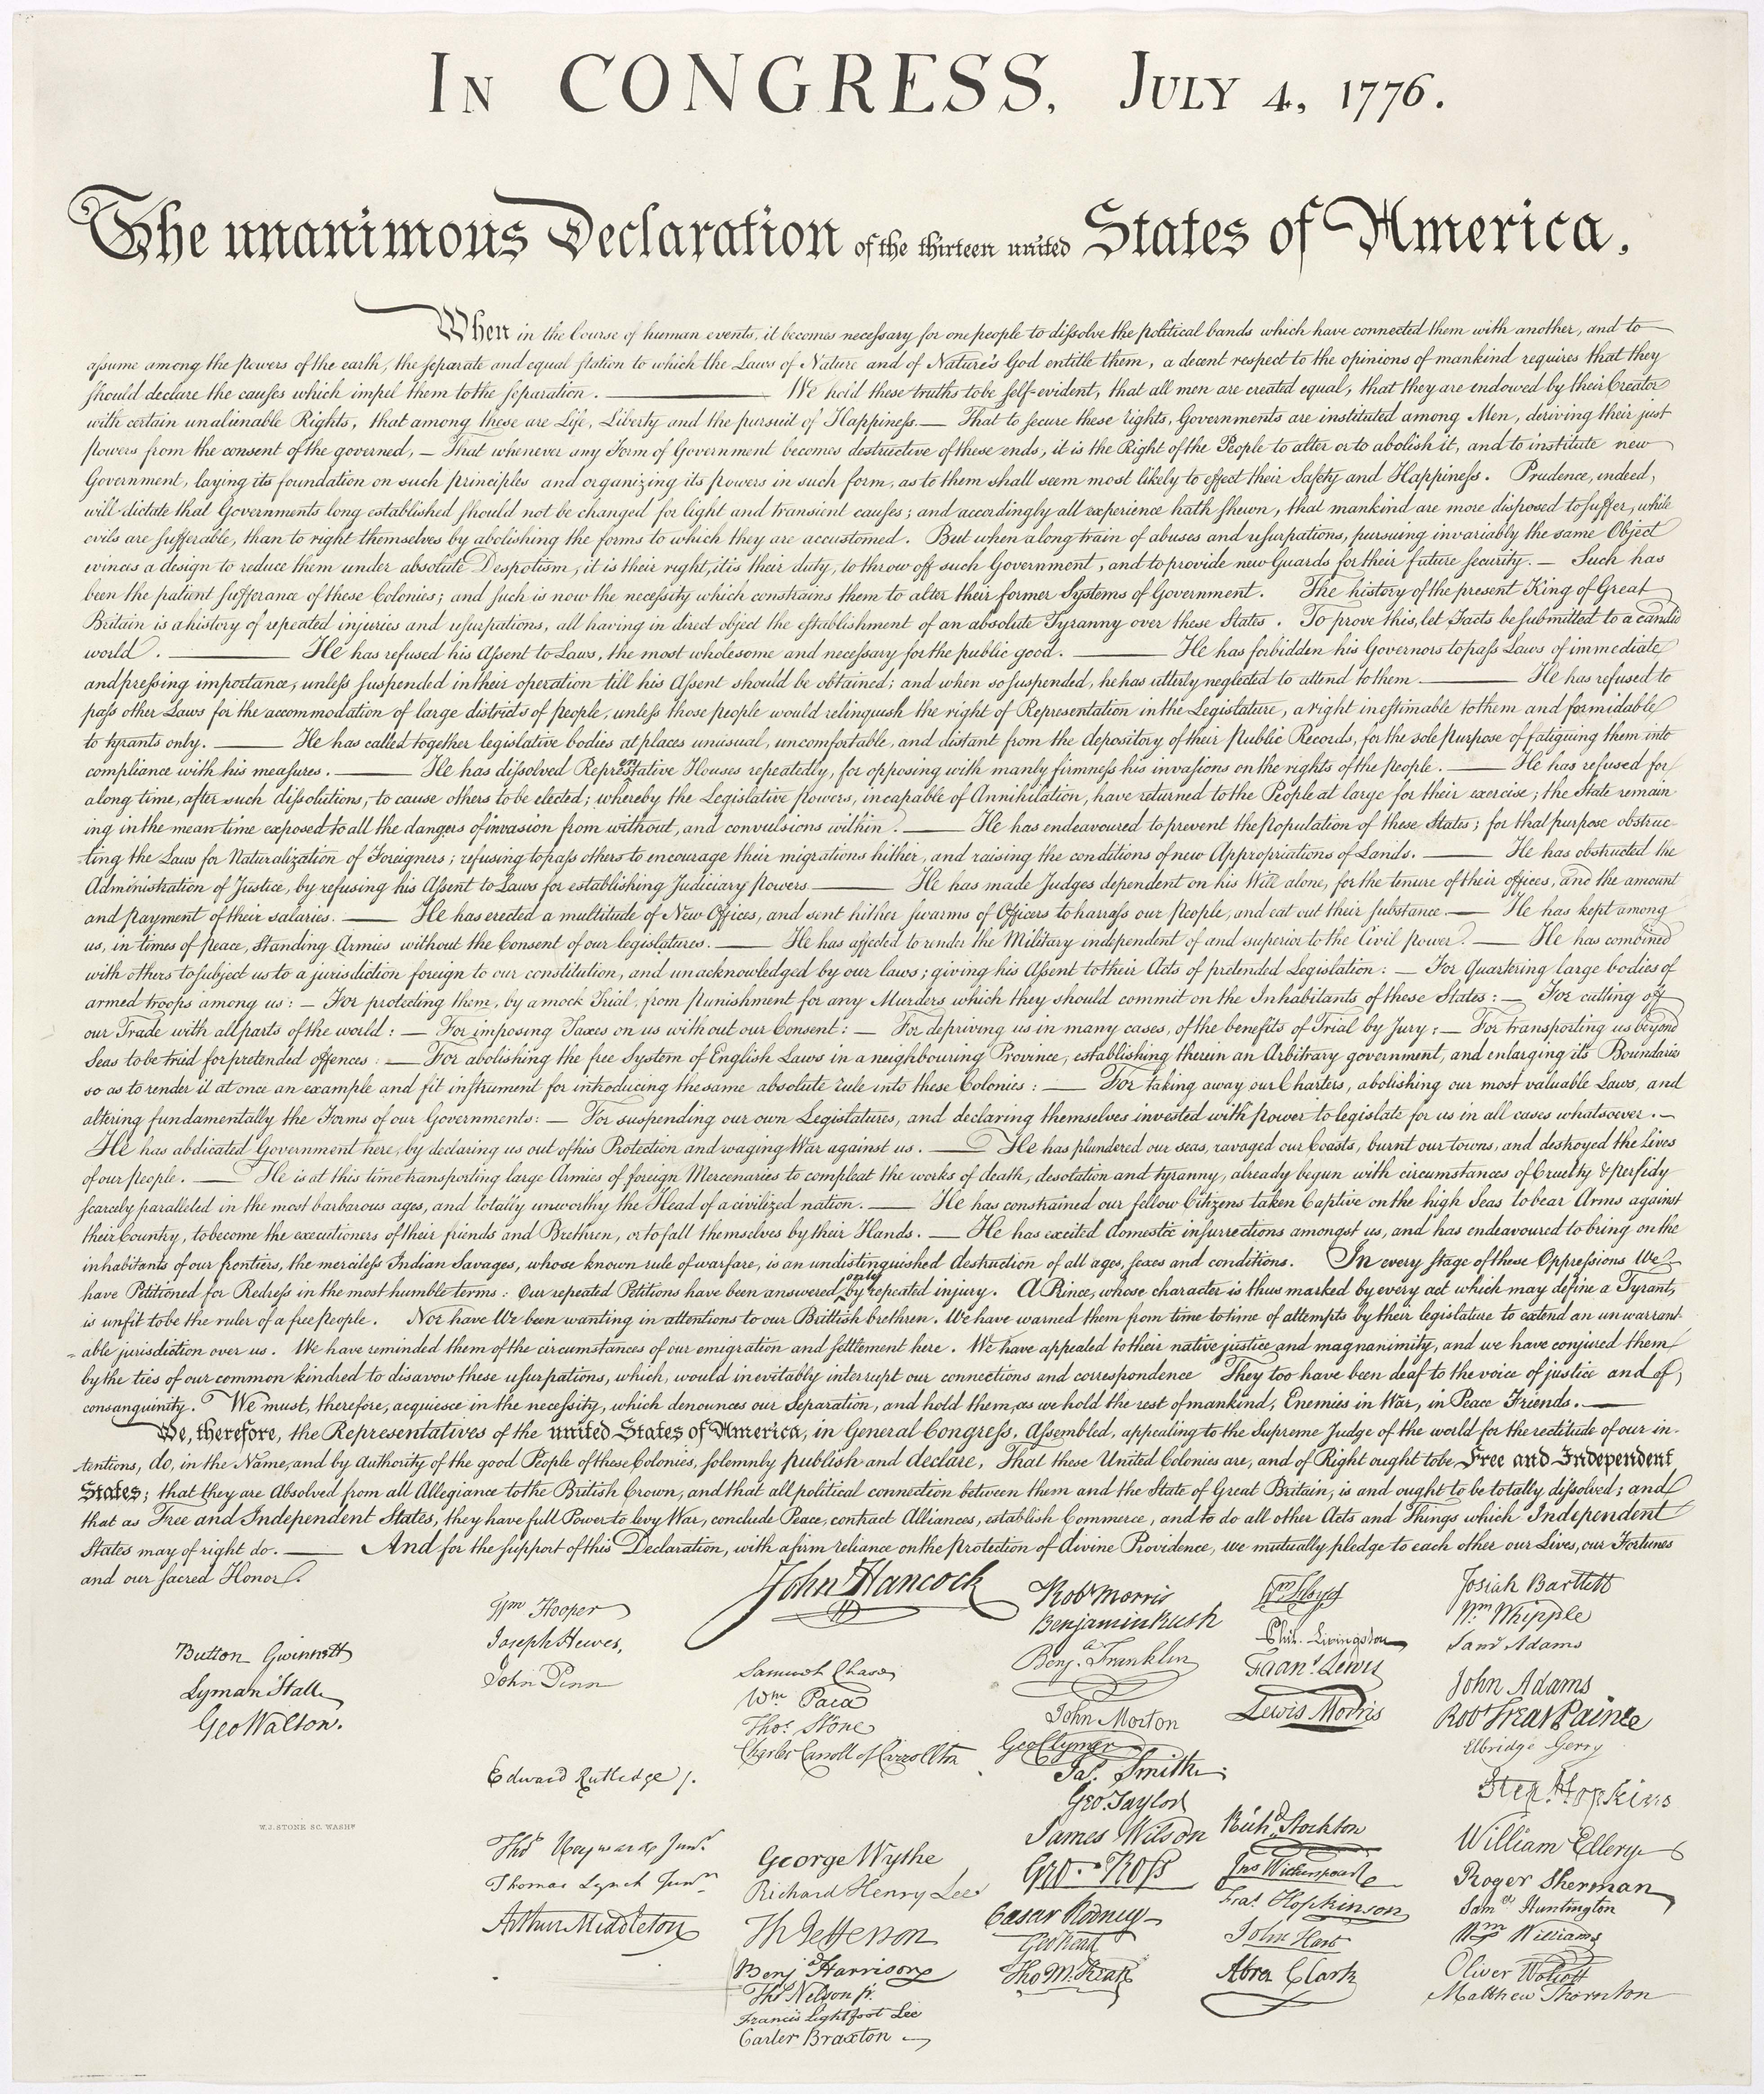 In CONGRESS, July 4, 1776.
The unanimous Declaration of the thirteen united States of America,
When in the Course of human events, it becomes necessary for one people to dissolve the political bands which have connected them with another, and to
assume among the powers of the earth, the separate and equal station to which the Laws of Nature and of Nature's God entitle them, a decent respect to the opinions of mankind requires that they
should declare the causes which impel them to the separation. — We hold these truths to be self-evident, that all men are created equal, that they are endowed by their Creator
with certain unalienable Rights, that among these are Life, Liberty and the pursuit of Happiness.— That to secure these rights, Governments are instituted among Men, deriving their just
powers from the consent of the governed, — That whenever any Form of Government becomes destructive of these ends, it is the Right of the People to alter or to abolish it, and to institute new
Government, laying its foundation on such principles and organizing its powers in such form, as to them shall seem most likely to effect their Safety and Happiness. Prudence, indeed,
will dictate that Governments long established should not be changed for light and transient causes; and accordingly all experience hath shewn, that mankind are more disposed to suffer, while
evils are sufferable, than to right themselves by abolishing the forms to which they are accustomed. But when a long train of abuses and usurpations, pursuing invariably the same Object
evinces a design to reduce them under absolute Despotism, it is their right, it is their duty, to throw off such Government, and to provide new Guards for their future security. — Such has
been the patient sufferance of these Colonies; and such is now the necessity which constrains them to alter their former Systems of Government. The history of the present King of Great
Britain is a history of repeated injuries and usurpations, all having in direct object the establishment of an absolute Tyranny over these States. To prove this, let Facts be submitted to a candid
world. — He has refused his Assent to Laws, the most wholesome and necessary for the public good. — He has forbidden his Governors to pass Laws of immediate
and pressing importance, unless suspended in their operation till his Assent should be obtained; and when so suspended, he has utterly neglected to attend to them. — He has refused to
pass other Laws for the accommodation of large districts of people, unless those people would relinquish the right of Representation in the Legislature, a right inestimable to them and formidable
to tyrants only. — He has called together legislative bodies at places unusual, uncomfortable, and distant from the depository of their public Records, for the sole purpose of fatiguing them into
compliance with his measures. — He has dissolved Representative Houses repeatedly, for opposing with manly firmness his invasions on the rights of the people. — He has refused for
a long time, after such dissolutions, to cause others to be elected; whereby the Legislative powers, incapable of Annihilation, have returned to the People at large for their exercise; the State remain
ing in the mean time exposed to all the dangers of invasion from without, and convulsions within. — He has endeavoured to prevent the population of these States; for that purpose obstruc-
ting the Laws for Naturalization of Foreigners; refusing to pass others to encourage their migrations hither, and raising the conditions of new Appropriations of Lands. — He has obstructed the
Administration of Justice, by refusing his Assent to Laws for establishing Judiciary powers — He has made Judges dependent on his Will alone, for the tenure of their offices, and the amount
and payment of their salaries. — He has erected a multitude of New Offices, and sent hither swarms of Officers to harrass our people, and eat out their substance. — He has kept among
us, in times of peace, Standing Armies without the Consent of our legislatures. — He has affected to render the Military independent of and superior to the Civil power. — He has combined
with others to subject us to a jurisdiction foreign to our constitution, and unacknowledged by our laws; giving his Assent to their Acts of pretended Legislation: — For Quartering large bodies of
armed troops among us: — For protecting them, by a mock Trial, from punishment for any Murders which they should commit on the Inhabitants of these States: — For cutting off
our Trade with all parts of the world: — For imposing Taxes on us without our Consent: — For depriving us in many cases, of the benefits of Trial by Jury: — For transporting us beyond
Seas to be tried for pretended offences: — For abolishing the free System of English Laws in a neighbouring Province, establishing therein an Arbitrary government, and enlarging its Boundaries
so as to render it at once an example and fit instrument for introducing the same absolute rule into these Colonies: — For taking away our Charters, abolishing our most valuable Laws, and
altering fundamentally the Forms of our Governments: — For suspending our own Legislatures, and declaring themselves invested with power to legislate for us in all cases whatsoever. —
He has abdicated Government here, by declaring us out of his Protection and waging War against us. — He has plundered our seas, ravaged our Coasts, burnt our towns, and destroyed the lives
of our people. — He is at this time transporting large Armies of foreign Mercenaries to compleat the works of death, desolation and tyranny, already begun with circumstances of Cruelty & perfidy
scarcely paralleled in the most barbarous ages, and totally unworthy the Head of a civilized nation. — He has constrained our fellow Citizens taken Captive on the high Seas to bear Arms against
their Country, to become the executioners of their friends and Brethren, or to fall themselves by their Hands. — He has excited domestic insurrections amongst us, and has endeavoured to bring on the
inhabitants of our frontiers, the merciless Indian Savages, whose known rule of warfare, is an undistinguished destruction of all ages, sexes and conditions. In every stage of these Oppressions We
have Petitioned for Redress in the most humble terms: Our repeated Petitions have been answered only by repeated injury. A Prince, whose character is thus marked by every act which may define a Tyrant,
is unfit to be the ruler of a free people. Nor have We been wanting in attentions to our Brittish brethren. We have warned them from time to time of attempts by their legislature to extend an unwarrant-
able jurisdiction over us. We have reminded them of the circumstances of our emigration and settlement here. We have appealed to their native justice and magnanimity, and we have conjured them
by the ties of our common kindred to disavow these usurpations, which, would inevitably interrupt our connections and correspondence They too have been deaf to the voice of justice and of
consanguinity. We must, therefore, acquiesce in the necessity, which denounces our Separation, and hold them, as we hold the rest of mankind, Enemies in War, in Peace Friends. —
We, therefore, the Representatives of the united States of America, in General Congress, Assembled, appealing to the Supreme Judge of the world for the rectitude of our in-
tentions, do, in the Name, and by Authority of the good People of these Colonies, solemnly publish and declare, That these United Colonies are, and of Right ought to be Free and Independent
States; that they are Absolved from all Allegiance to the British Crown, and that all political connection between them and the State of Great Britain, is and ought to be totally dissolved; and
that as Free and Independent States, they have full Power to levy War, conclude Peace, contract Alliances, establish Commerce, and to do all other Acts and Things which Independent
States may of right do. — And for the support of this Declaration, with a firm reliance on the protection of divine Providence, we mutually pledge to each other our Lives, our Fortunes
and our sacred Honor.
Button Gwinnett
Lyman Hall
Geo Walton.
W. J. STONE SC. WASHN
Wm Hooper
Joseph Hewes,
John Penn
Edward Rutledge /.
Thos Heyward Junr.
Thomas Lynch Junr.
Arthur Middleton
John Hancock
Samuel Chase
Wm Paca
Thos. Stone
Charles Carroll of Carrollton
George Wythe
Richard Henry Lee
Th Jefferson
Benj Harrison
Thos Nelson jr.
Francis Lightfoot Lee
Carter Braxton
Robt Morris
Benjamin Rush
Benj. Franklin
John Morton
Geo Clymer
Jas. Smith.
Geo. Taylor
James Wilson
Geo. Ross
Caesar Rodney
Geo Read
Tho M:Kean
Wm Floyd
Phil. Livingston
Frans. Lewis
Lewis Morris
Richd. Stockton
Jno Witherspoon
Fras. Hopkinson
John Hart
Abra Clark
Josiah Bartlett
Wm: Whipple
Saml Adams
John Adams
Robt Treat Paine
Elbridge Gerry
Step. Hopkins
William Ellery
Roger Sherman
Saml Huntington
Wm Williams
Oliver Wolcott
Matthew Thornton